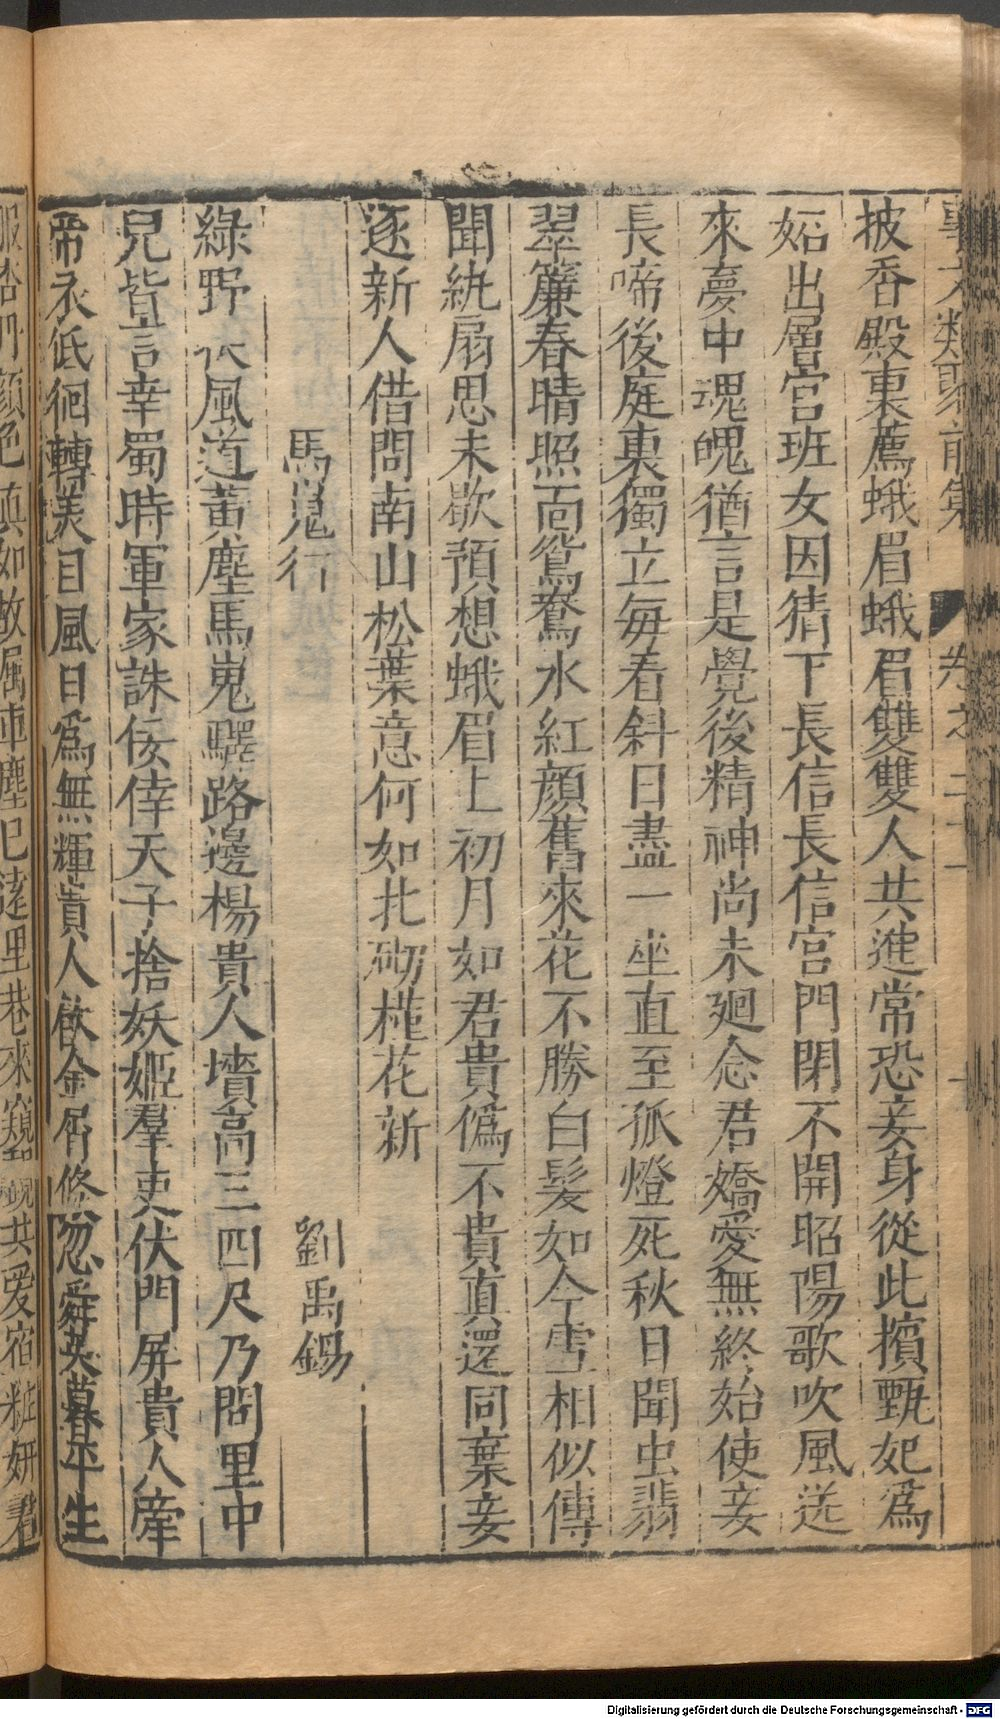 事文類聚前集 卷之二十一
披香殿裏薦蛾眉蛾眉雙雙人共進常恐妾身從此擯甄妃爲
妬出層宫班女因猜下長信長信宫門閉不開昭陽歌吹風送
來夢中魂魄猶言是覺後精神尚未廻念君嬌愛無終始使妾
長啼後庭裏獨立每看斜日盡一坐直至孤燈死秋日聞虫翡
翠簾春晴照面鴛鴦水紅顔舊來花不勝白髮如今雪相似傳
聞紈扇思未歇預想蛾眉上初月如君貴僞不貴真還同棄妾
逐新人借問南山松葉意何如北砌槿花新
馬嵬行 劉禹錫
綠野 風道黃塵馬嵬驛路邊楊貴人墳高三四尺乃問里中
兒皆言幸蜀時軍家誅佞倖天子捨妖姬羣吏伏門屏貴人牽
帝衣低徊轉美目風日爲無輝貴人飲金屑倐忽舜英暮平生
服杏丹顔色真如故属車塵已遠里巷來窺覰共爱宿粧妍君
Digitalisierung gefördert durch die Deutsche Forschungsgemeinschaft - DFG